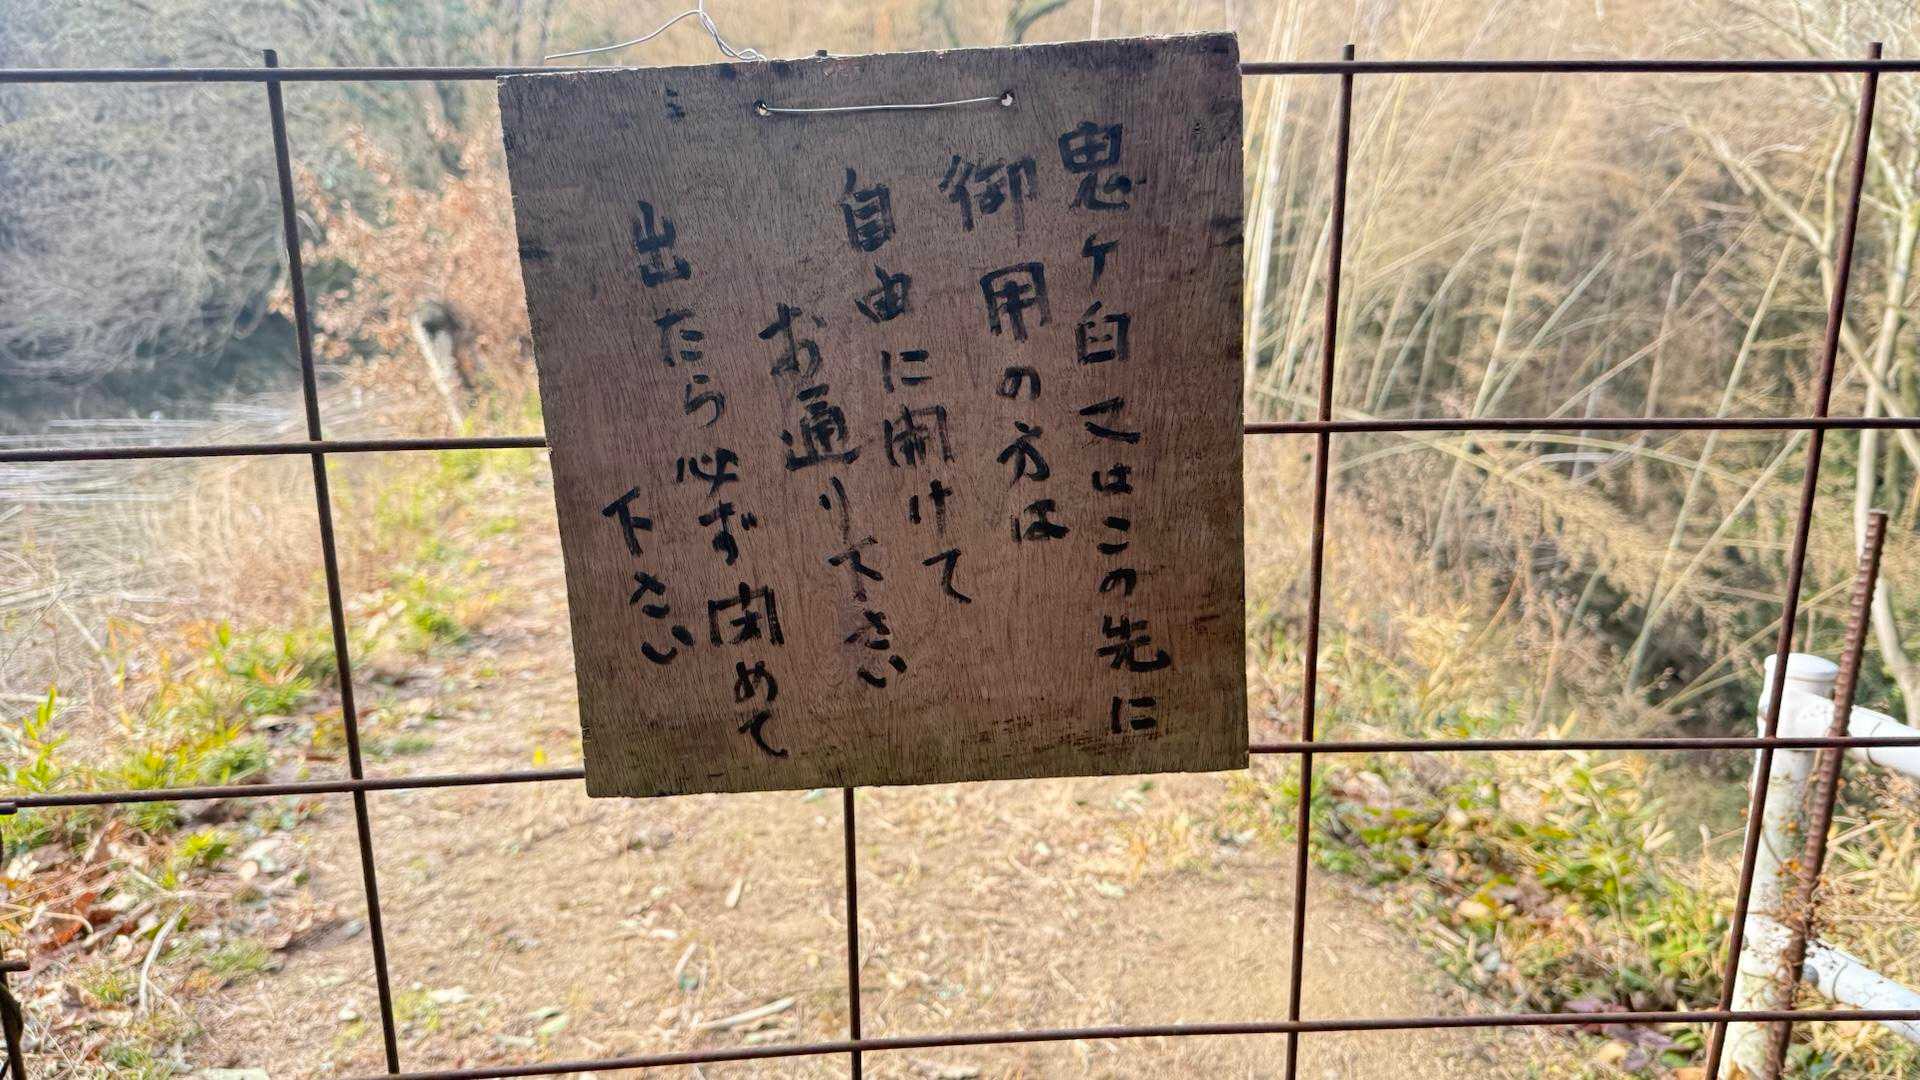 鬼ケ臼へはこの先に
御用の方は
自由に開けて
お通り下さい
出たら必ず閉めて
下さい